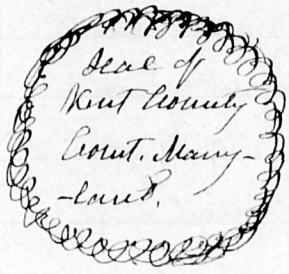 Seal of
Kent County
Court. Mary-
-land.